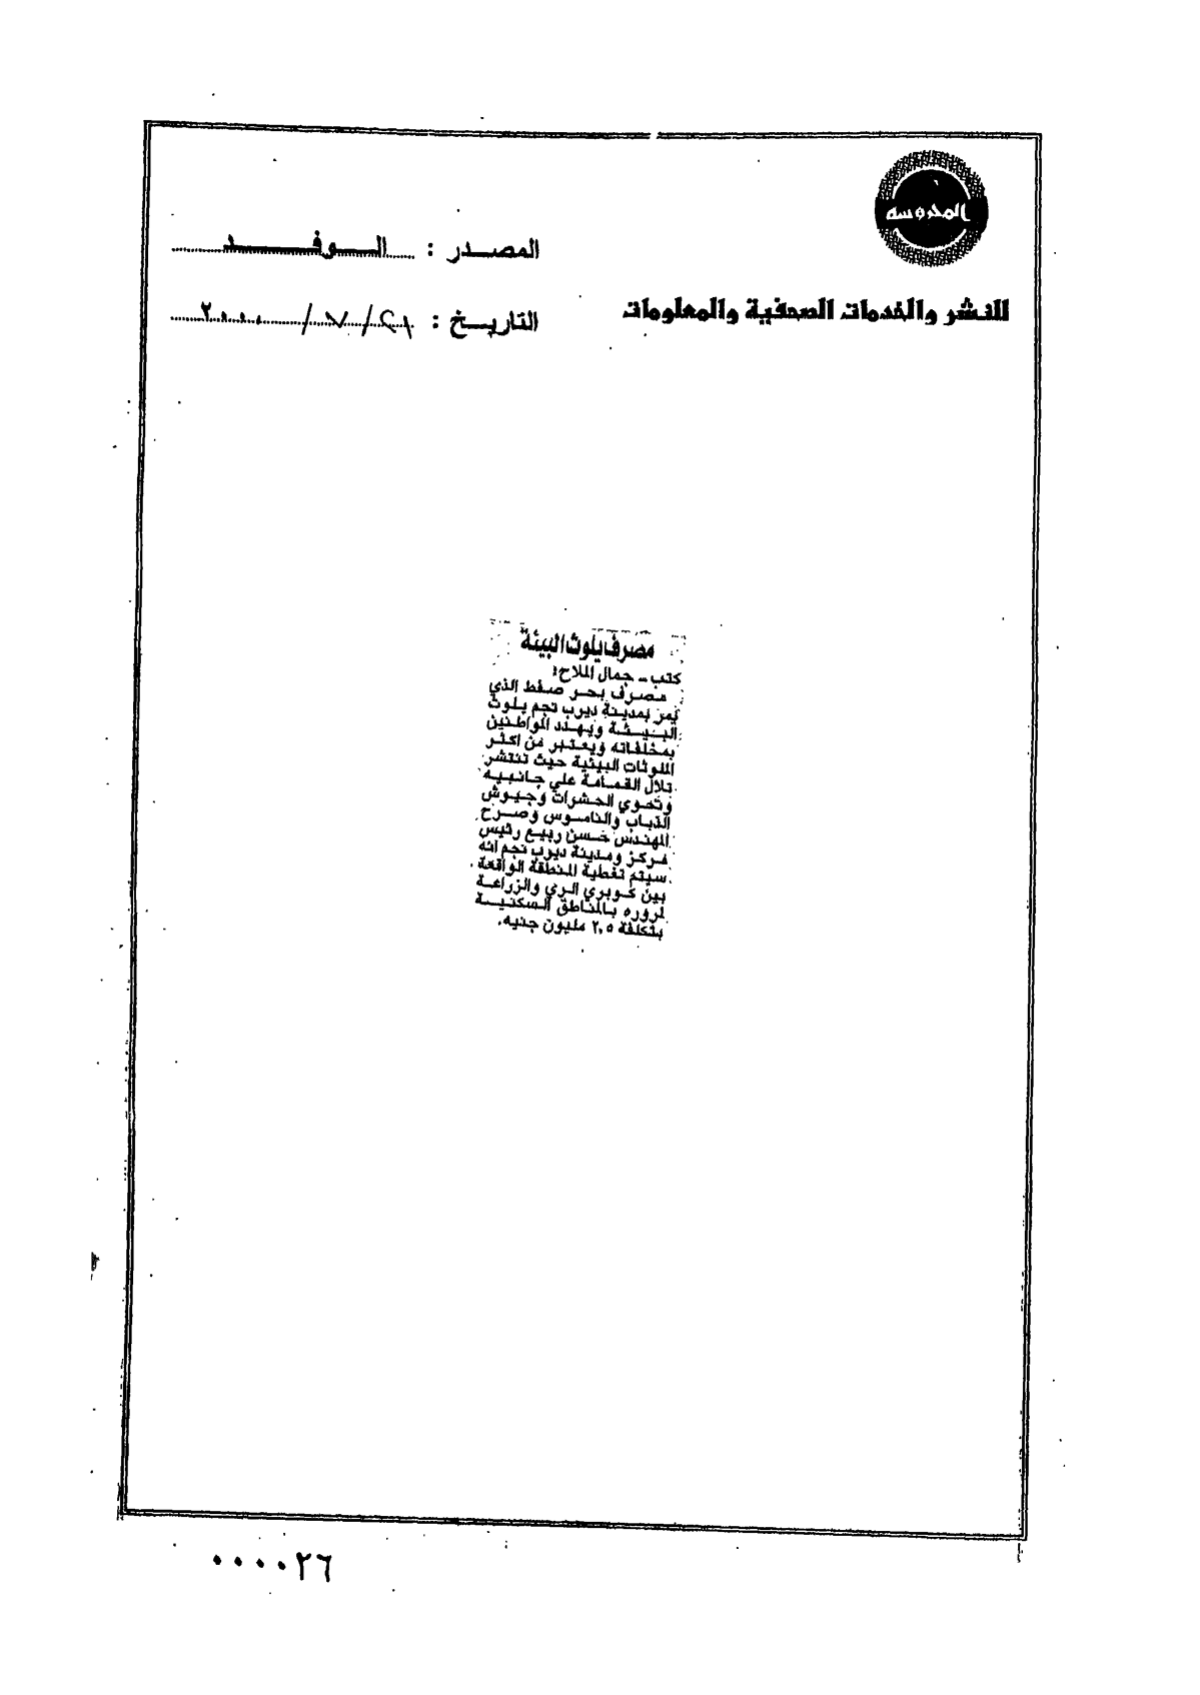 المحروسة
للنشر والخدمات الصحفية والمعلومات
المصدر : الوفد
التاريخ : ٢١ / ٧ / ٢٠٠٠
مصرف يلوث البيئة
كتب ـ جمال الملاح:
مصرف بحر صفط الذي
يمر بمدينة ديرب نجم يلوث
البيئة ويهدد المواطنين
بمخلفاته ويعتبر من اكثر
الملوثات البيئية حيث تنتشر
تلال القمامة علي جانبيه
وتحوي الحشرات وجيوش
الذباب والناموس وصرح
المهندس حسن ربيع رئيس
مركز ومدينة ديرب نجم انه
سيتم تغطية المنطقة الواقعة
بين كوبري الري والزراعة
لمروره بالمناطق السكنية
بتكلفة ٢,٥ مليون جنيه.
٠٠٠٠٢٦